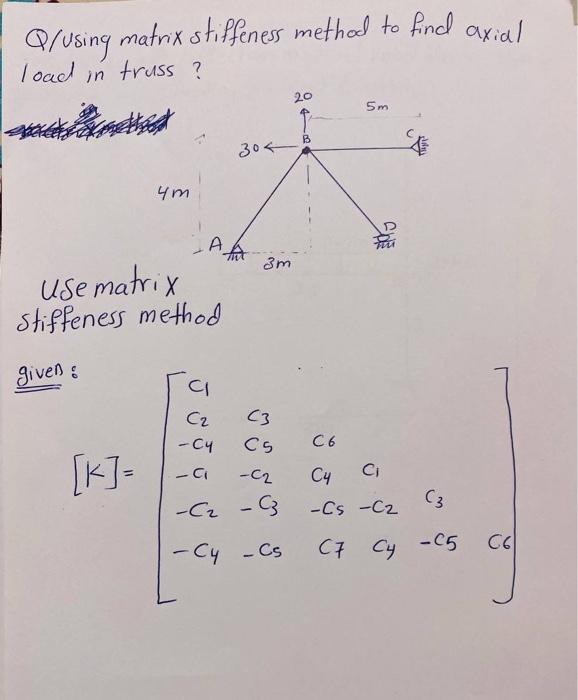 Q/using matrix stiffeness method to find axial
load in truss ?
20
5m
30
B
C
4m
A
D
3m
Use matrix
stiffeness method
given:
C1
C2 C3
-C4 C5 C6
[K]= -C1 -C2 C4 C1
-C2 -C3 -C5 -C2 C3
-C4 -C5 C7 C4 -C5 C6